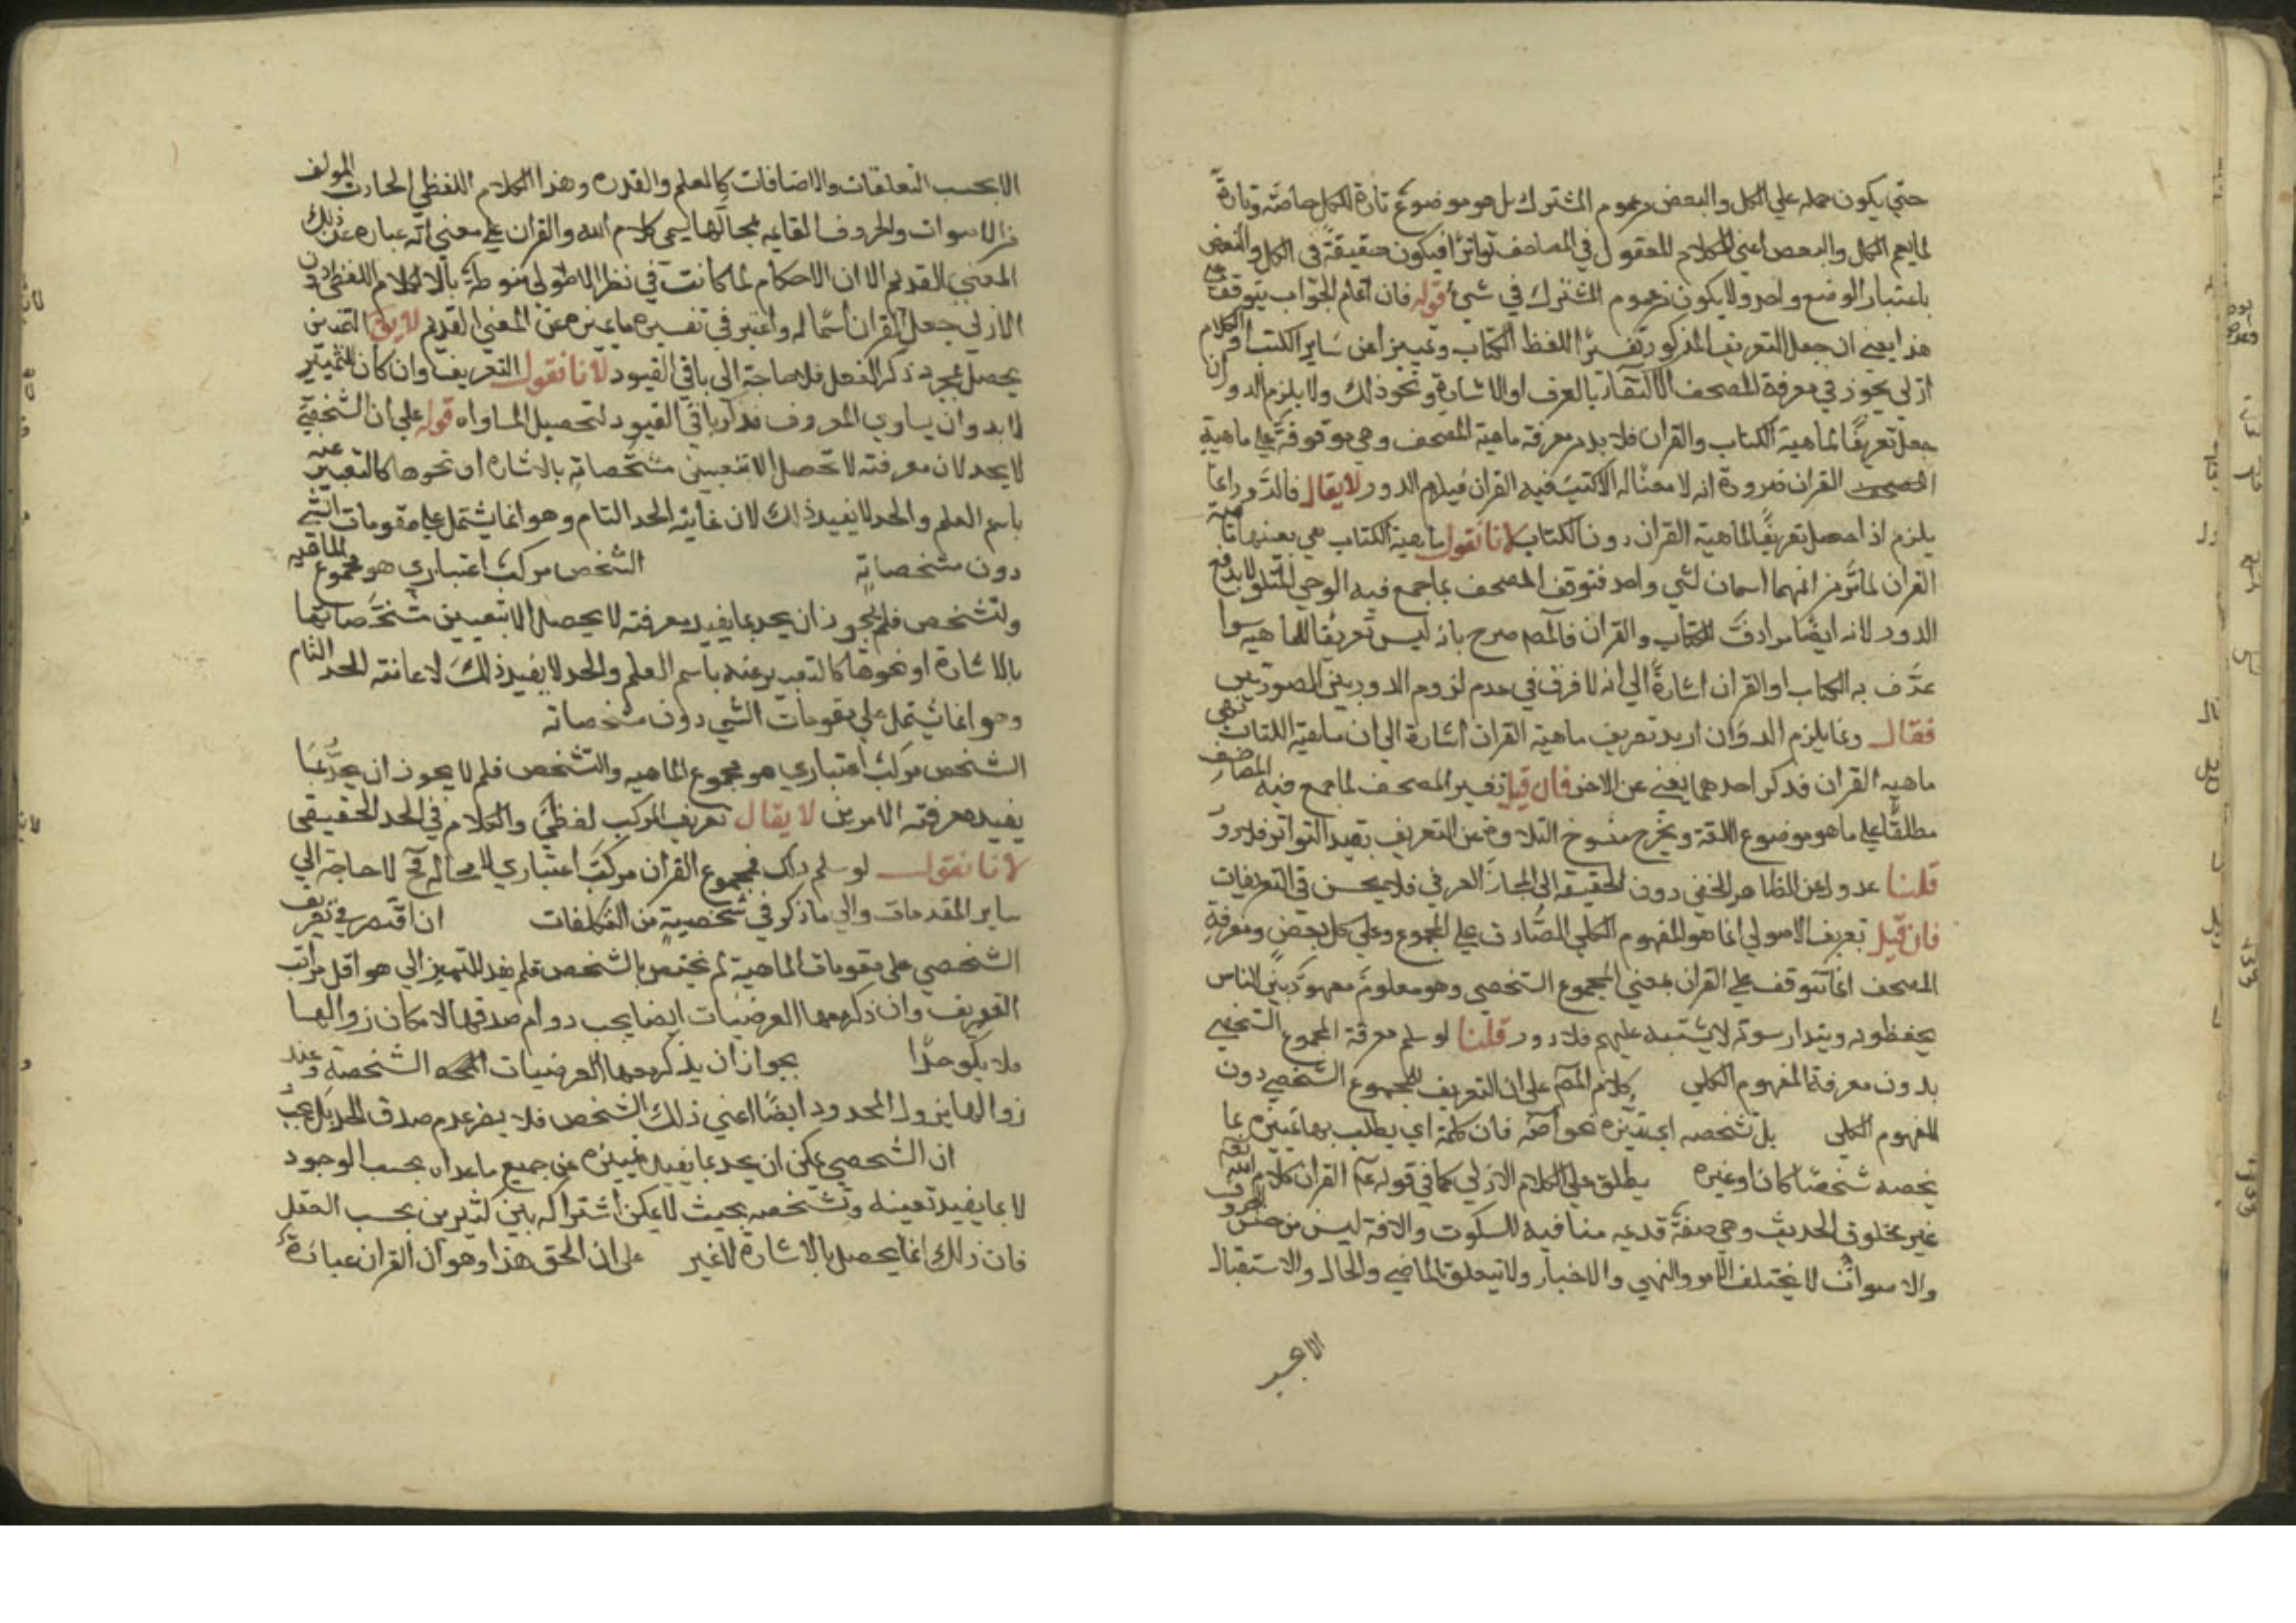 حتي يكون حمله علي الكل والبعض من عموم المشترك بل هو موضوع تارة للكل خاصة وتارة
لما يعم الكل والبعض اعني الكلام المنقول في المصاحف تواترا فيكون حقيقة في الكل والبعض
باعتبار الوضع واحد ولا يكون من عموم المشترك في شئ قوله فان اتمام الجواب يتوقف علي
هذا يعني ان جعل التعريف المذكور تفسيرا للفظ الكتاب وتمييزا عن ساير الكتب او الكلام
الازلي يجوز في معرفة المصحف الاكتفاء بالعرف او الاشارة ونحو ذلك ولا يلزم الدور وان
جعل تعريفا لماهية الكتاب والقران فلا بد من معرفة ماهية المصحف وهي موقوفة علي ماهية
القران ضرورة انه لا معنا له الا كتب فيه القران فيلزم الدور لا يقال فالدور انما
يلزم اذا جعل تعريفا لماهية القران دون الكتاب لانا نقول ماهية الكتاب هي بعينها ماهية
القران لما مر من انهما اسمان لشي واحد فتوقف المصحف بما جمع فيه الوحي المتلو لا يدفع
الدور لانه ايضا مرادف للكتاب والقران فالمصـ صرح بانه ليس تعريفا للماهية سوا
عرف به الكتاب او القران اشارة الي انه لا فرق في عدم لزوم الدور بين الصورتين
فقال وانما يلزم الدور ان اريد تعريف ماهية القران اشارة الي ان ماهية الكتاب هي
ماهية القران فذكر احدهما يغني عن الاخر فان قيل تفسير المصحف لما جمع فيه المصاحف
مطلقا علي ما هو موضوع اللغة ويخرج منسوخ التلاوة عن التعريف بقيد التواتر فلا دور
قلنا عدول عن الظاهر الخفي دون الحقيقة الي المجاز العرفي فلا يحسن في التعريفات
فان قيل تعريف الاصولي انما هو المفهوم الكلي الصادق علي المجموع وعلي كل بعض ومعرفة
المصحف انما تتوقف علي القران بمعني المجموع الشخصي وهو معلوم معهود بين الناس
يحفظونه ويتدارسونه لا يشتبه عليهم فلا دور قلنا لو سلم معرفة المجموع الشخصي
بدون معرفة المفهوم الكلي كلام المصـ علي ان التعريف للمجموع الشخصي دون
المفهوم الكلي بل تشخصه اي تميزه نحو اصه فان كلمة اي يطلب بها تمييزه بما
يخصه شخصا كان او غيره يطلق علي الكلام الازلي كما في قوله عم القران كلام الله
غير مخلوق الحديث وهي صفة قديمه منافيه للسكوت والافة ليس من جنس الحروف
والاصوات لا يختلف الي الامر والنهي والاخبار ولا تتعلق بالماضي والحال والاستقبال
الا بحسب
الا بحسب التعلقات والاضافات كالعلم والقدره وهذا الكلام اللفظي الحادث المولف
من الاصوات والحروف القايمه بمحالها يسمي كلام الله والقران علي معني انه عباره عن ذلك
المعني القديم الا ان الاحكام لما كانت في نظر الاصولي منوطة بالكلام اللفظي دون
الازلي جعل القران اسما له واعتبر في تفسيره ما يميزه عن المعني القديم لا يق التمييز
يحصل بمجرد ذكر النقل فلا حاجة الي باقي القيود لانا نقول التعريف وان كان للتمييز
لا بد وان يساوي المعروف فذكر باقي القيود لتحصيل المساواه قوله علي ان الشخصي
لا يحد لان معرفته لا تحصل الا بتعيين مشخصاته بالاشاره او نحوها كالتعبير عنه
باسم العلم والحد لا يفيد ذلك لان غايته الحد التام وهو انما يشتمل علي مقومات الشي
دون مشخصاته الشخص مركب اعتباري هو مجموع الماهيه
والتشخص فلم يجوز ان يحد بما يفيد معرفته لا يحصل الا بتعيين مشخصاتها
بالاشارة او نحوها كالتعبير عنه باسم العلم والحد لا يفيد ذلك لان غايته الحد التام
وهو انما يشتمل علي مقومات الشي دون مشخصاته
الشخص مركب اعتباري هو مجموع الماهيه والتشخص فلم لا يجوز ان يحد بما
يفيد معرفته الامرين لا يقال تعريف المركب لفظي والكلام في الحد الحقيقي
لانا نقول لو سلم ذلك فمجموع القران مركب اعتباري لا محاله فح لا حاجة الي
ساير المقدمات والي ما ذكر في شخصيته من التكلفات ان اقتصر في تعريف
الشخصي علي مقومات الماهية لم يختص بالشخص فلم يفد التمييز الي هو اقل مراتب
التعريف وان ذكر معها العرضيات ايضا يجب دوام صدقها لامكان زوالها
فلا يكو حدا بجواز ان يذكر معها العرضيات الشخصة وعند
زوالها يزول المحدود ايضا اعني ذلك الشخص فلا يضر عدم صدق الحد بل يجب
ان الشخصي يمكن ان يحد بما يفيد تمييزه عن جميع ما عداه بحسب الوجود
لا بما يفيد تعينه وتشخصه بحيث لا يمكن اشتراكه بين كثيرين بحسب العقل
فان ذلك انما يحصل بالاشارة لا غير علي ان الحق هذا وهو ان القران عبارة